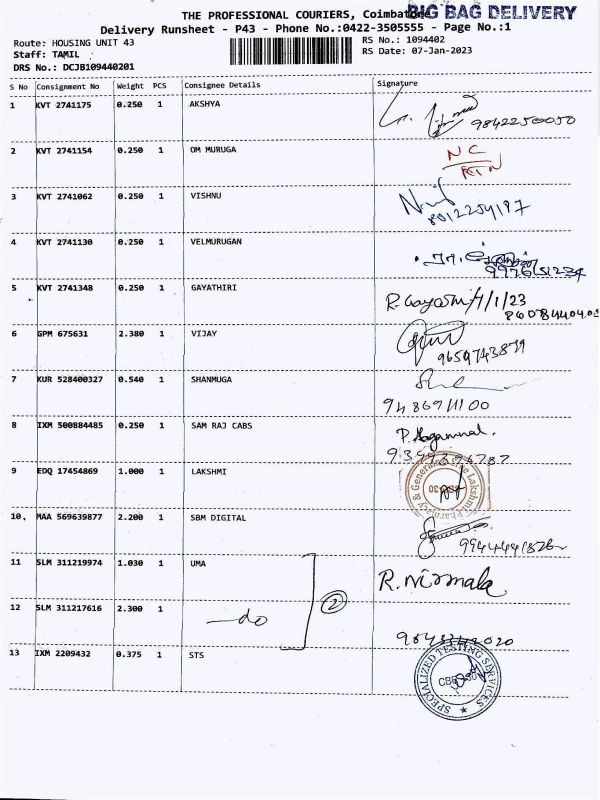 THE PROFESSIONAL COURIERS, Coimbatore
BIG BAG DELIVERY
Delivery Runsheet - P43 - Phone No.:0422-3505555 - Page No.:1
Route: HOUSING UNIT 43
RS No.: 1094402
Staff: TAMIL
RS Date: 07-Jan-2023
DRS No.: DCJB109440201
S No Consignment No Weight PCS Consignee Details Signature
1 KVT 2741175 0.250 1 AKSHYA
9842250050
2 KVT 2741154 0.250 1 OM MURUGA NC
RTN
3 KVT 2741062 0.250 1 VISHNU
8012254197
4 KVT 2741130 0.250 1 VELMURUGAN
5 KVT 2741348 0.250 1 GAYATHIRI
R. Gayathri 7/1/23
6 GPM 675631 2.380 1 VIJAY
9659743879
7 KUR 528400327 0.540 1 SHANMUGA
9486911100
8 IXM 500884485 0.250 1 SAM RAJ CABS
9 EDQ 17454869 1.000 1 LAKSHMI
Lakshmi Pharmacy & General
10. MAA 569639877 2.200 1 SBM DIGITAL
11 SLM 311219974 1.030 1 UMA
R. Nirmala
12 SLM 311217616 2.300 1 do 2
13 IXM 2209432 0.375 1 STS
SPECIALIZED TESTING SERVICES